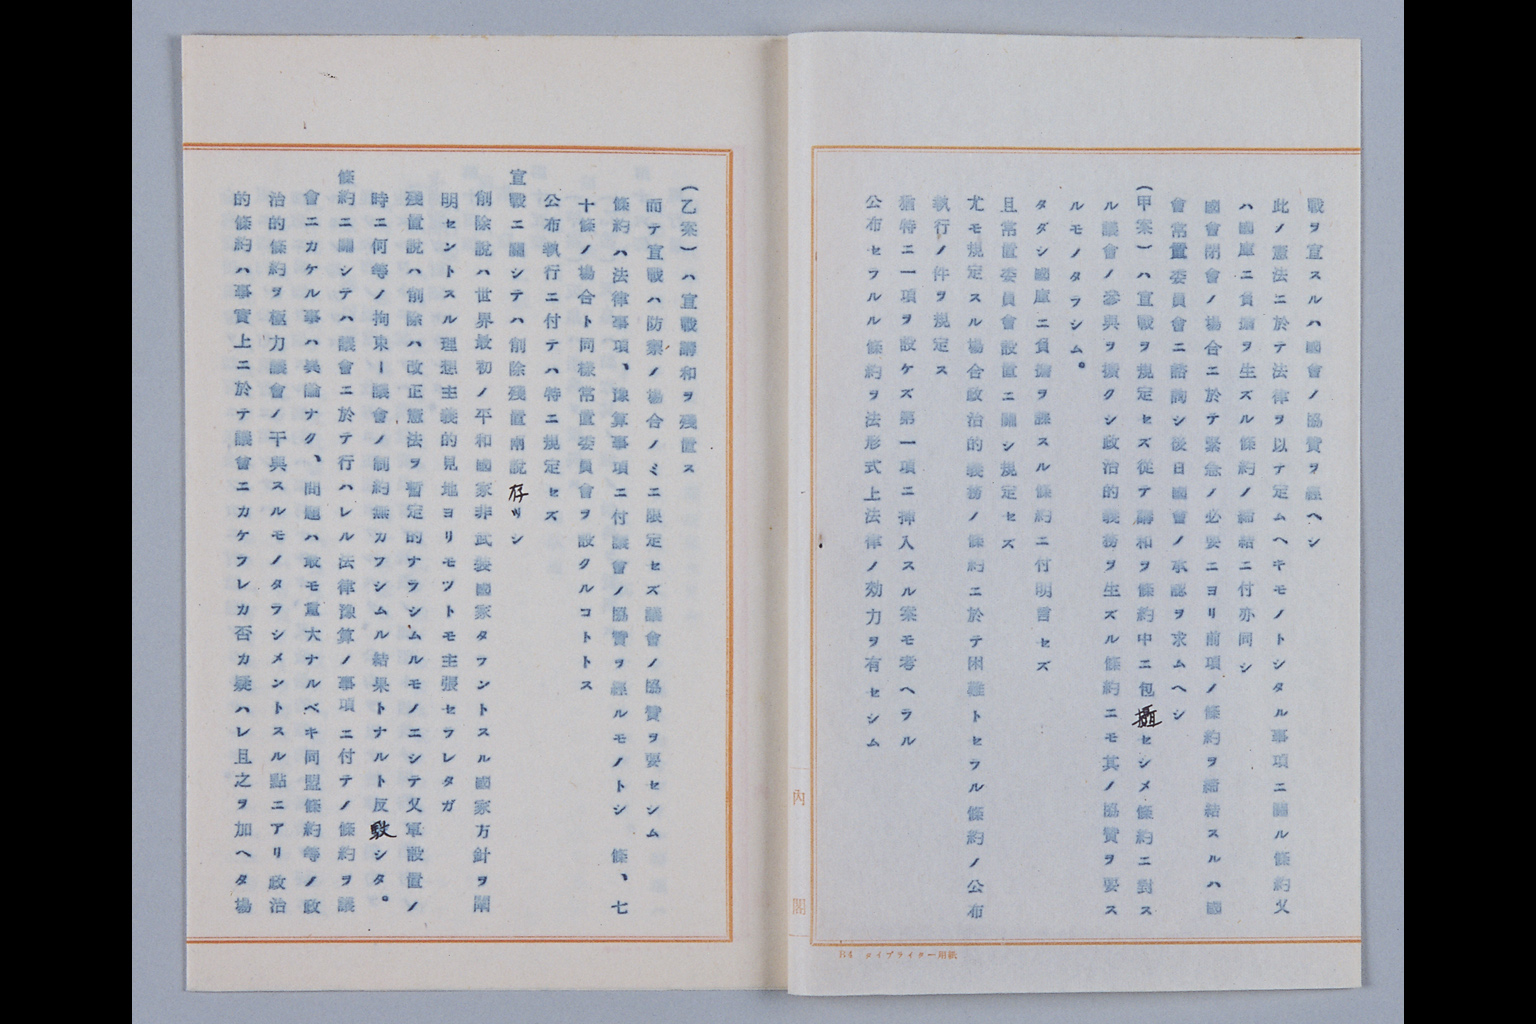 戰ヲ宣スルハ國會ノ協賛ヲ經ヘシ
此ノ憲法ニ於テ法律ヲ以テ定ムヘキモノトシタル事項ニ關ル條約又
ハ國庫ニ負擔ヲ生ズル條約ノ締結ニ付亦同シ
國會閉會ノ場合ニ於テ緊急ノ必要ニヨリ前項ノ條約ヲ締結スルハ國
會常置委員會ニ諮詢シ後日國會ノ承認ヲ求ムヘシ
(甲案)ハ宣戰ヲ規定セズ從テ講和ヲ條約中ニ包攝セシメ條約ニ對ス
ル議會ノ參與ヲ擴クシ政治的義務ヲ生ズル條約ニモ其ノ協賛ヲ要ス
ルモノタラシム。
タダシ國庫ニ負擔ヲ課スル條約ニ付明言セズ
且常置委員會設置ニ關シ規定セズ
尤モ規定スル場合政治的義務ノ條約ニ於テ困難トセラル條約ノ公布
執行ノ件ヲ規定ス
猶特ニ一項ヲ設ケズ第一項ニ挿入スル案モ考ヘラル
公布セラルル條約ヲ法形式上法律ノ効力ヲ有セシム
內閣
B4 タイプライター用紙
(乙案)ハ宣戰講和ヲ殘置ス
而テ宣戰ハ防禦ノ場合ノミニ限定セズ議會ノ協賛ヲ要セシム
條約ハ法律事項、豫算事項ニ付議會ノ協賛ヲ經ルモノトシ 條、七
十條ノ場合ト同樣常置委員會ヲ設クルコトトス
公布執行ニ付テハ特ニ規定セズ
宣戰ニ關シテハ削除殘置兩說存リシ
削除說ハ世界最初ノ平和國家非武裝國家タラントスル國家方針ヲ闡
明セントスル理想主義的見地ヨリモツトモ主張セラレタガ
殘置說ハ削除ハ改正憲法ヲ暫定的ナラシムルモノニシテ又軍設置ノ
時ニ何等ノ拘束ー議會ノ制約無カラシムル結果トナルト反駁シタ。
條約ニ關シテハ議會ニ於テ行ハレル法律豫算ノ事項ニ付テノ條約ヲ議
會ニカケル事ハ異論ナク、問題ハ最モ重大ナルベキ同盟條約等ノ政
治的條約ヲ極力議會ノ干與スルモノタラシメントスル點ニアリ政治
的條約ハ事實上ニ於テ議會ニカケラレカ否カ疑ハレ且之ヲ加ヘタ場